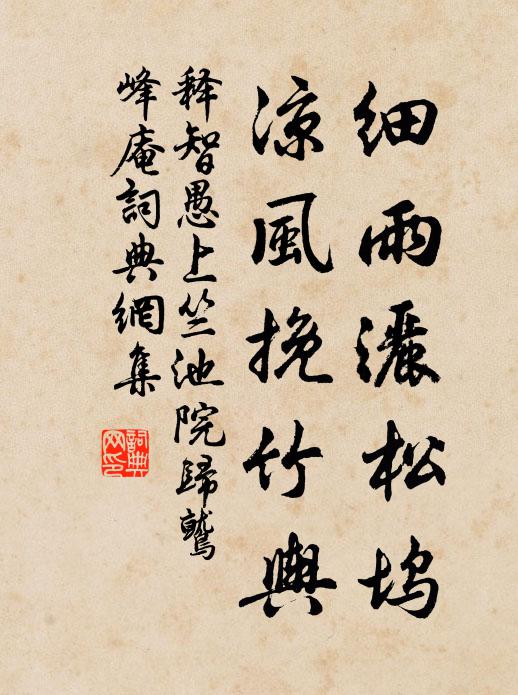 細雨灑松塢
涼風挽竹輿
釋智愚上竺池院歸鷲
峰庵詞典網集
詞典
网印